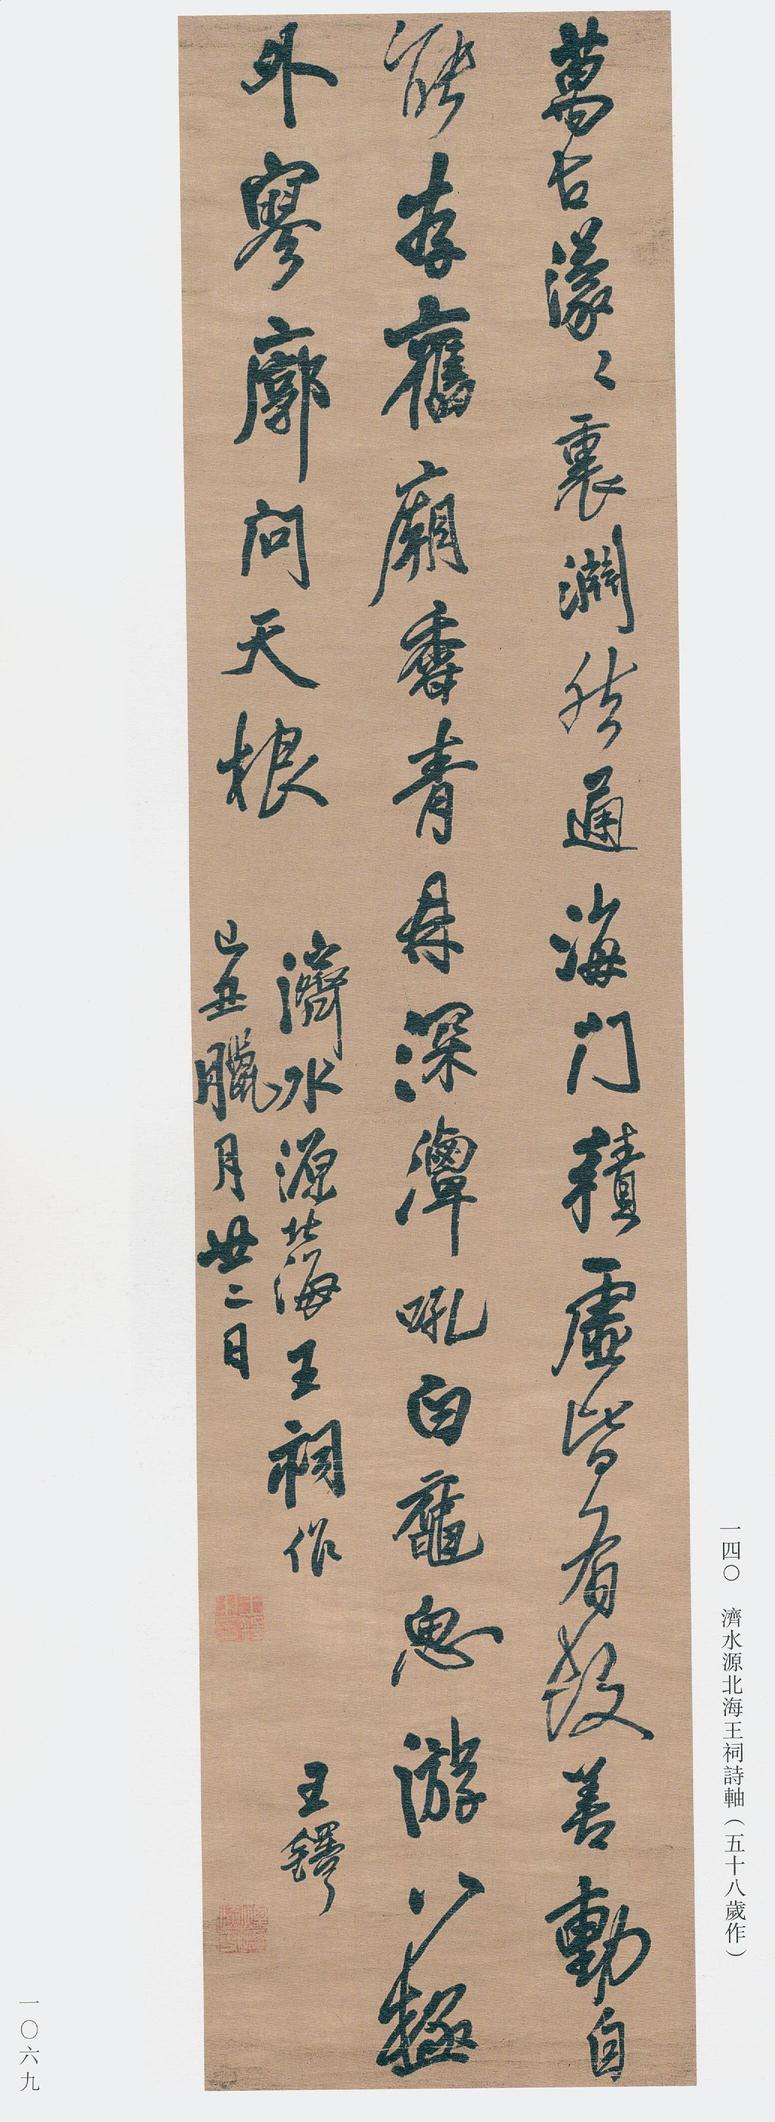 一四〇 濟水源北海王祠詩軸（五十八歲作）
萬古濛〻裏淵然通海門積虛皆有故善動自
能存舊廟青深潭吼白黿思游八極
外寥廓問天根
濟水源北海王祠作
己丑臘月廿二日
王鐸
一〇六九